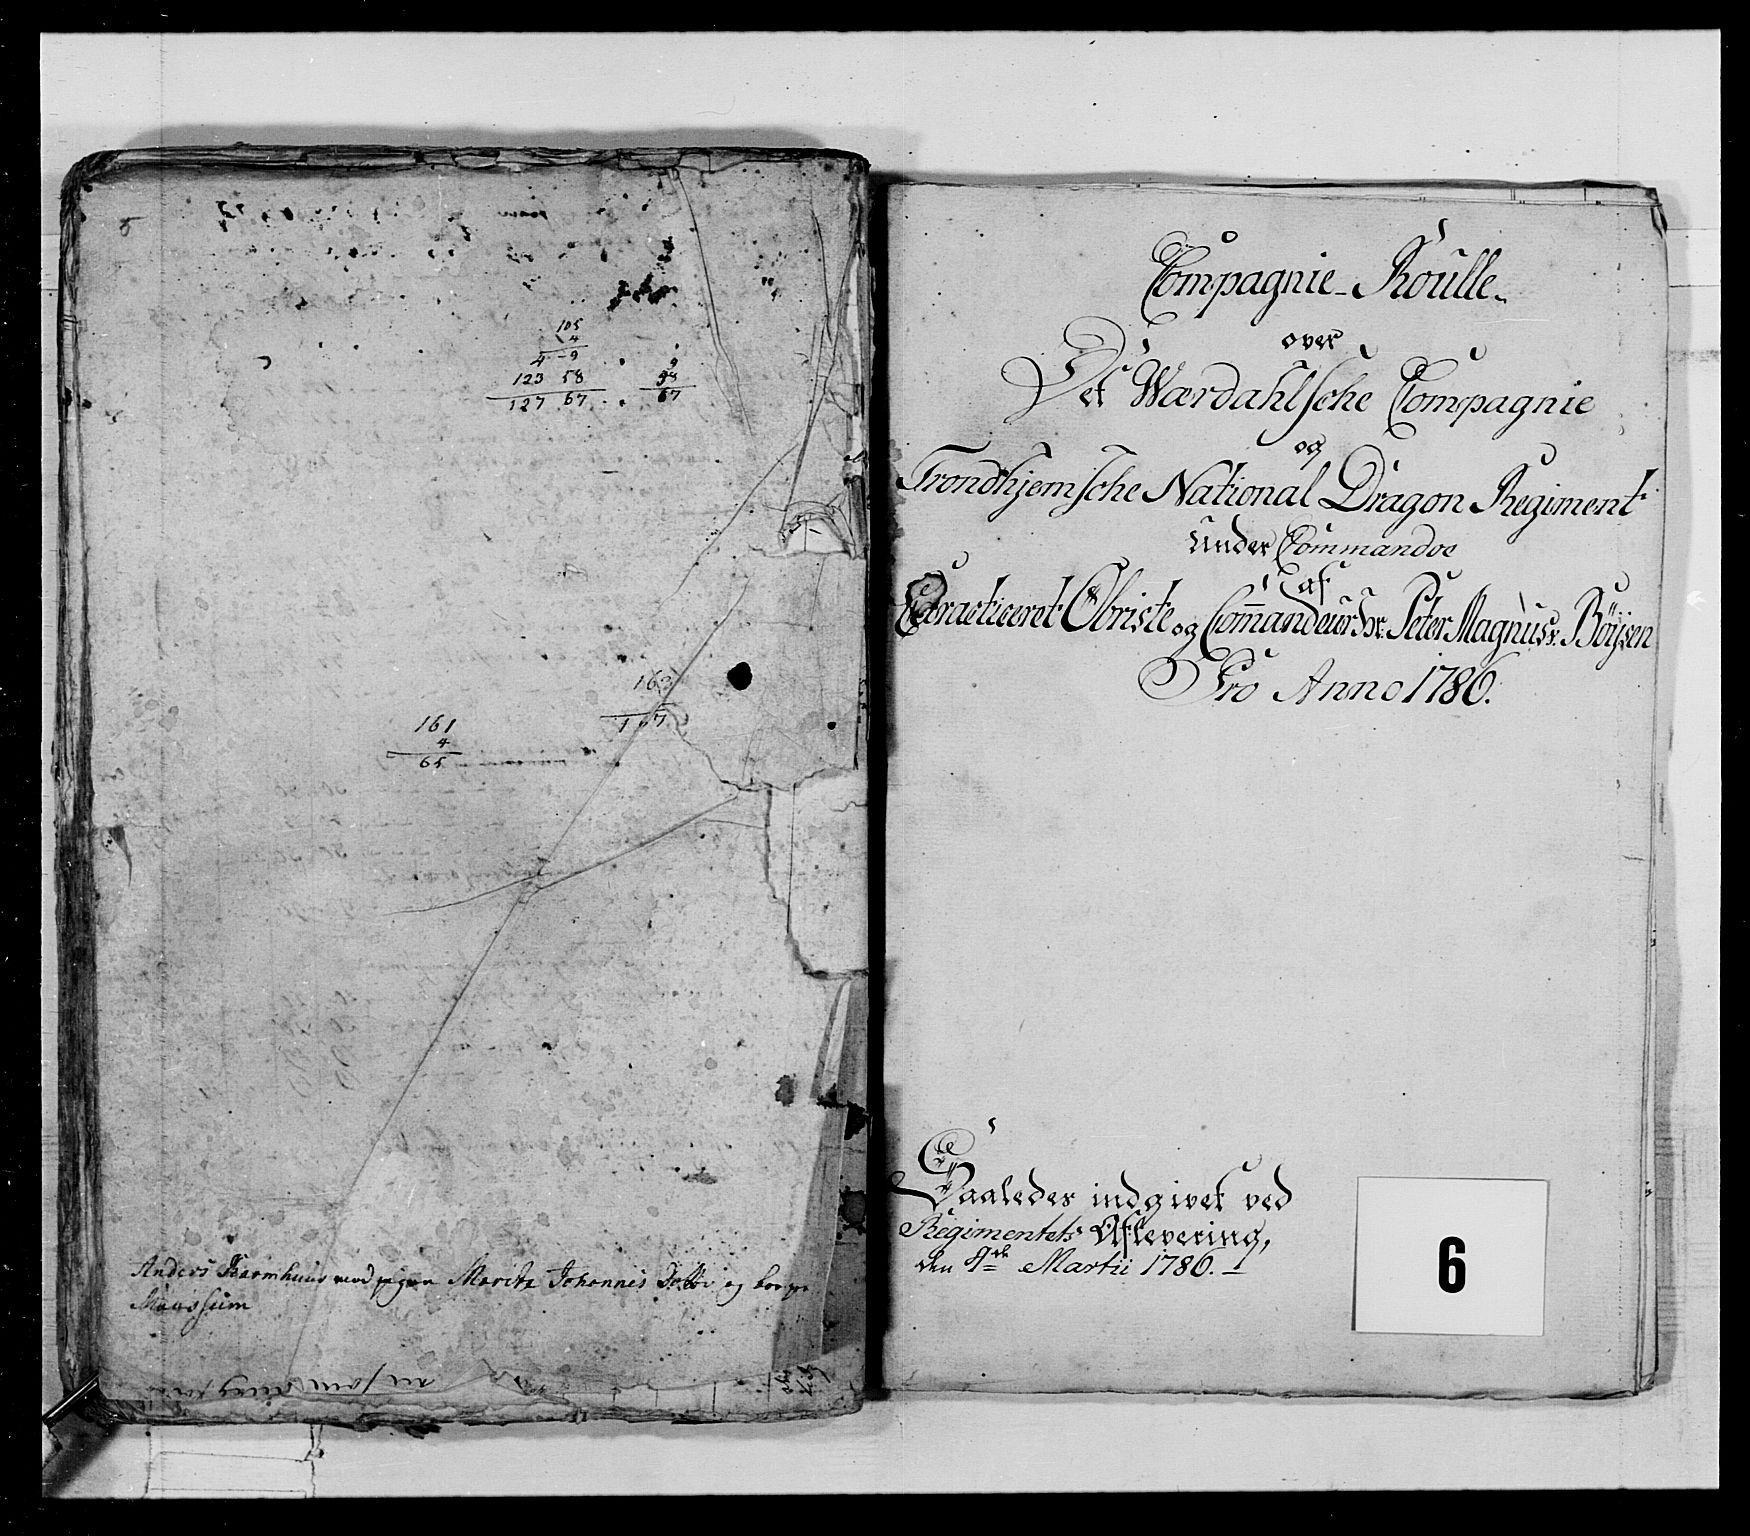 105
4
4 - 9
123 58
127 67
9
58
67
163
167
161
4
65
Anders Karmhuus med pigen Marita Johannis Dotter og
Maussum
Compagnie-Roulle
over
Det Wærdahlsche Compagnie
og
Trondhjemsche National Dragon Regiment
Under Commandoe
af
Caracticeret Obriste og Commandeur Hr. Peter Magnus v. Böÿsen
Pro Anno 1786.
Saaledes indgivet ved
Regimentets Aflevering,
den Martii 1786.
6